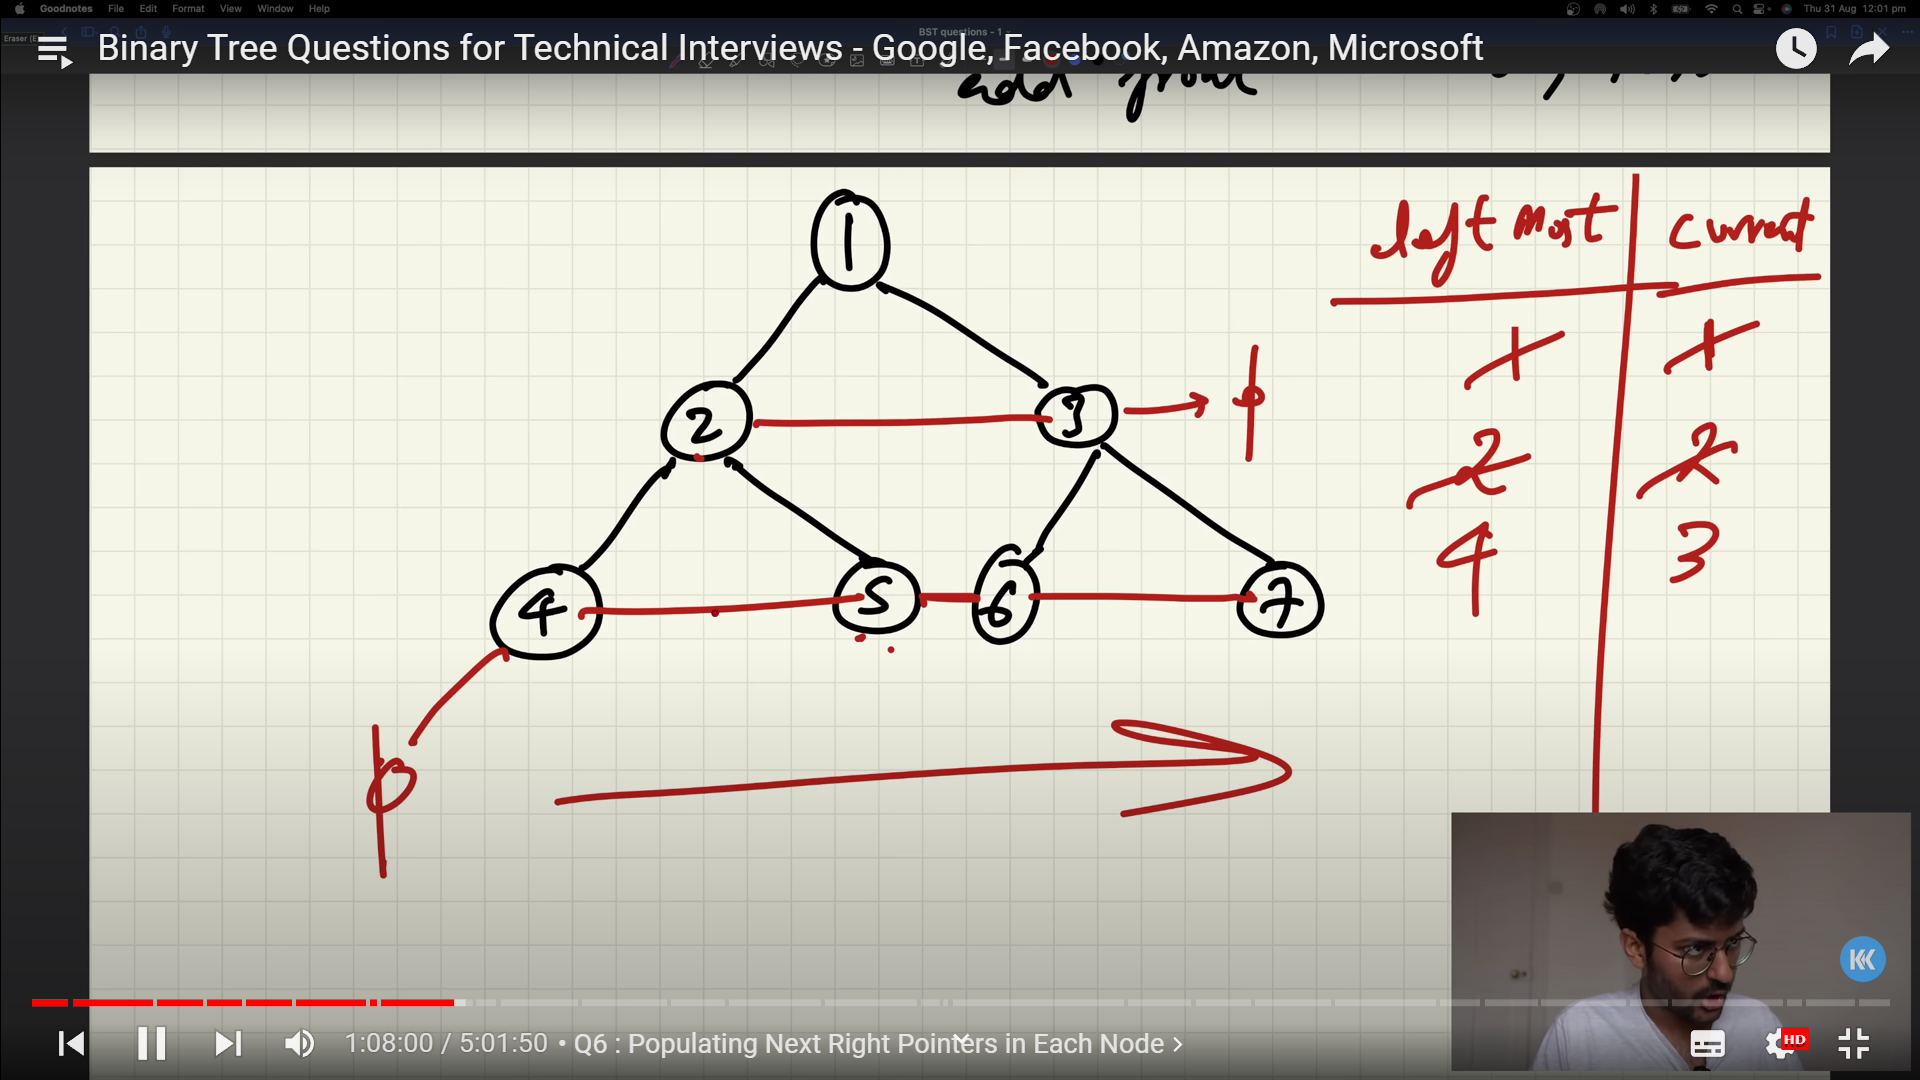 Goodnotes File Edit Format View Window Help
Thu 31 Aug 12:01 pm
BST questions - 1
Binary Tree Questions for Technical Interviews - Google, Facebook, Amazon, Microsoft
add from
left most current
1
1 1
2 3
2 2
4 3
4 5 6 7
1:08:00 / 5:01:50 • Q6 : Populating Next Right Pointers in Each Node
HD